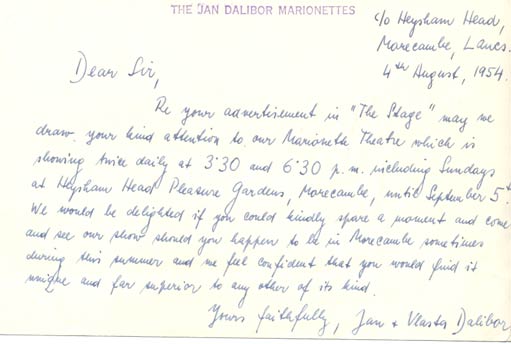 THE JAN DALIBOR MARIONETTES
c/o Heysham Head,
Morecambe, Lancs.
4th August, 1954.
Dear Sir,
Re your advertisement in "The Stage" may we
draw your kind attention to our Marionette Theatre which is
showing twice daily at 3·30 and 6·30 p.m. including Sundays
at Heysham Head Pleasure Gardens, Morecambe, until September 5th.
We would be delighted if you could kindly spare a moment and come
and see our show should you happen to be in Morecambe sometimes
during this summer and we feel confident that you would find it
unique and far superior to any other of its kind.
Yours faithfully, Jan + Vlasta Dalibor